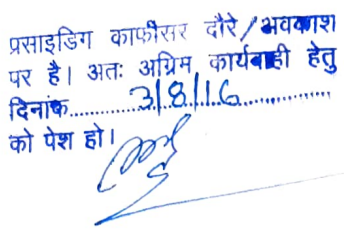 प्रसाइडिग काफीसर दौरे/अवकाश
पर है। अतः अग्रिम कार्यवाही हेतु
दिनांक.........3/8/16.............
को पेश हो।